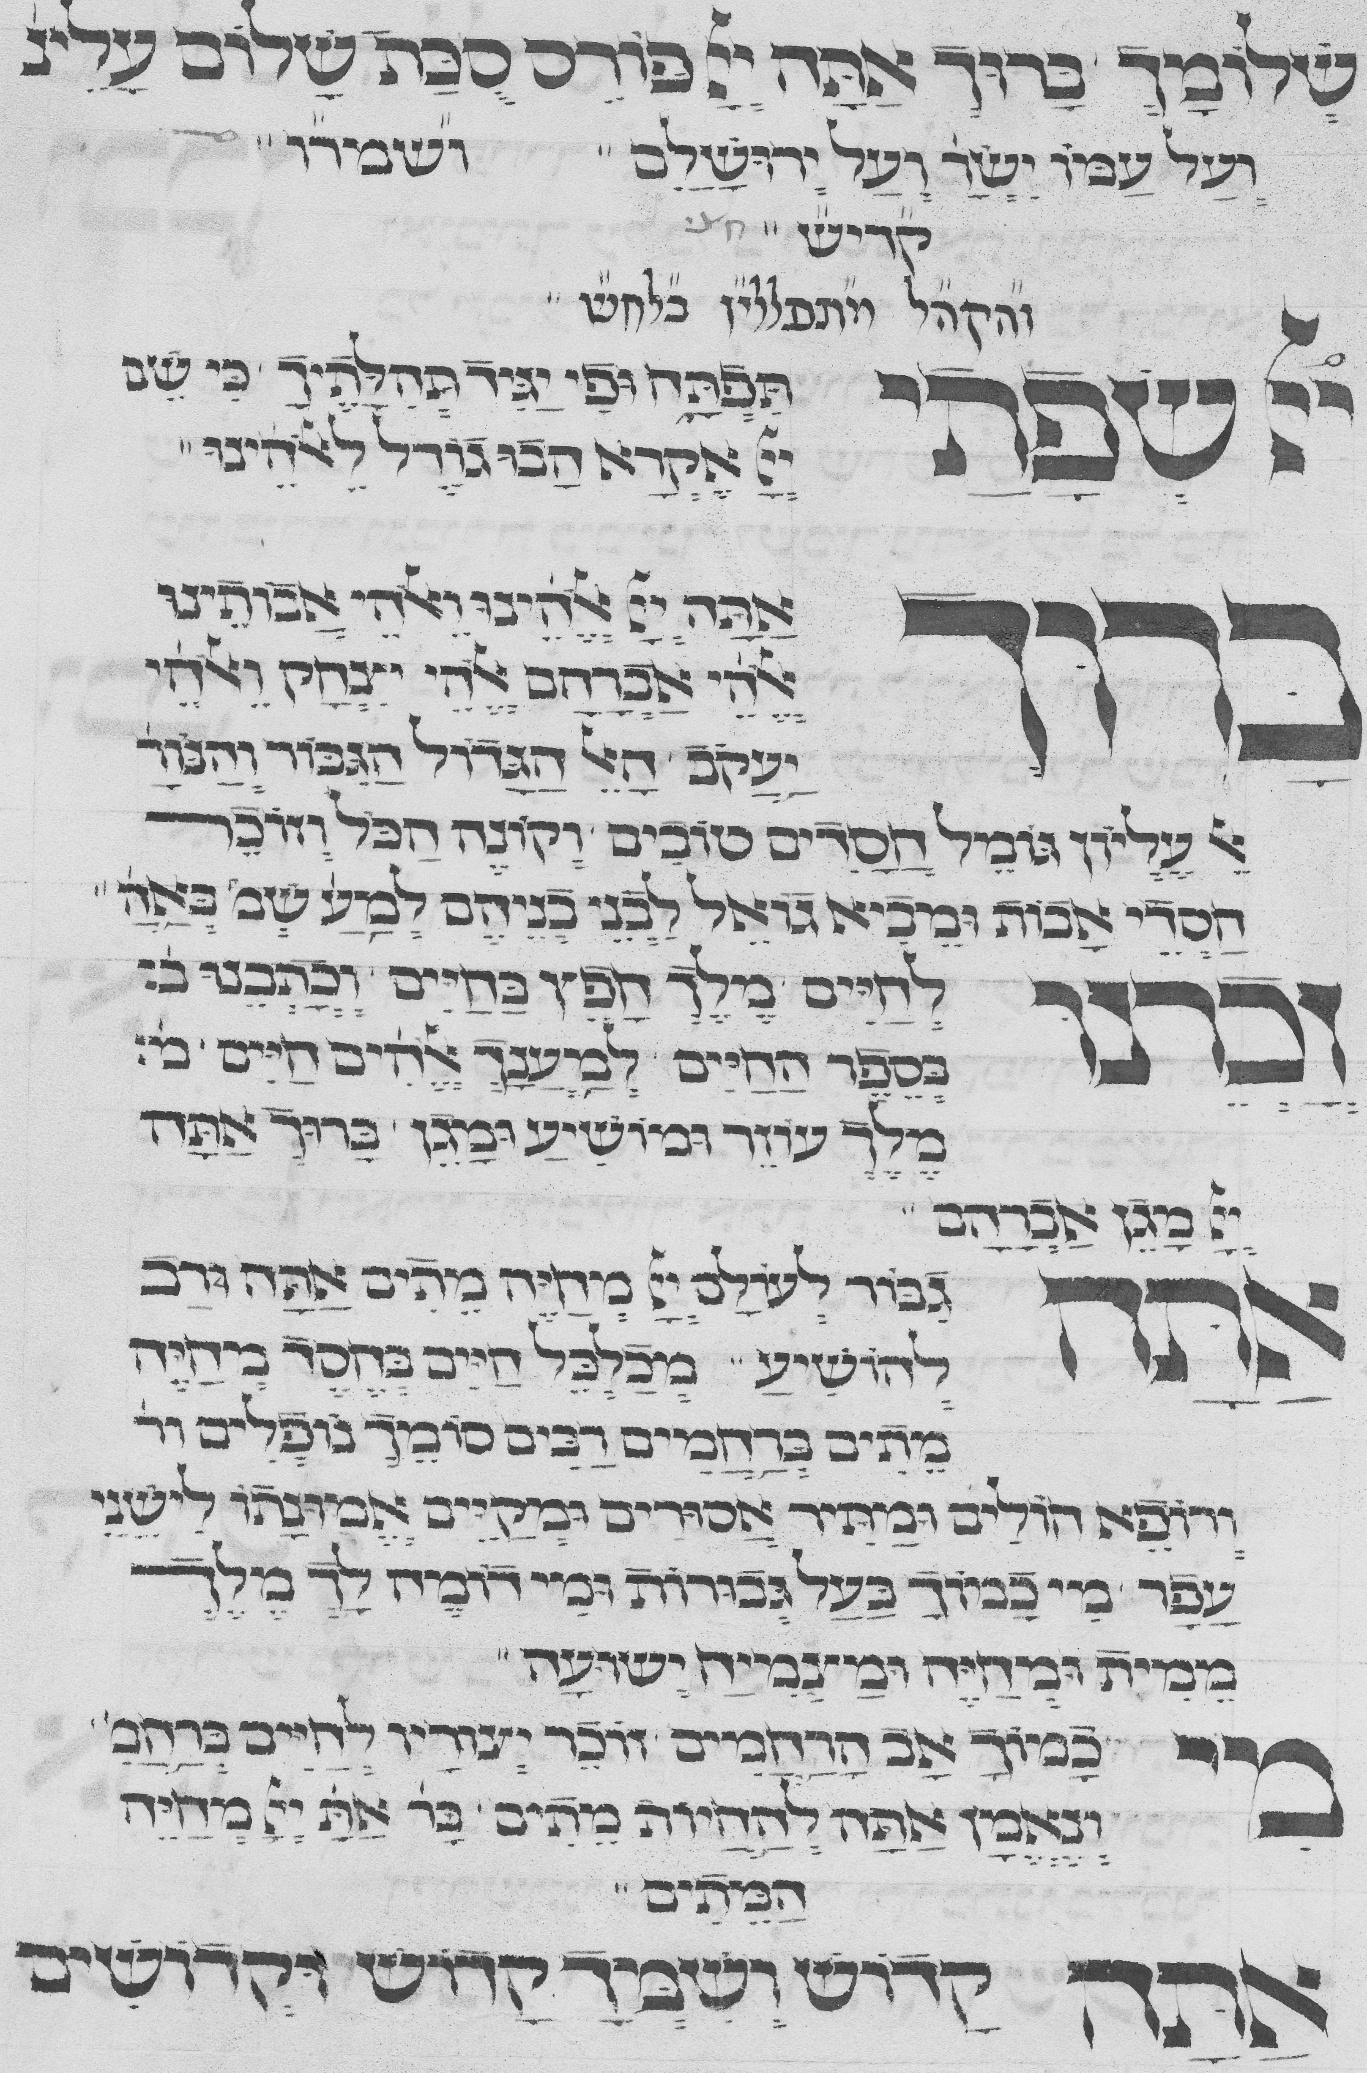 שְׁלוֹמָךָ · בָּרוּךְ אַתָּה יְיָ פּוֹרֵס סֻכַּת שָׁלוֹם עָלֵינ
וְעַל עַמּוֹ יִשְׂרָ וְעַל יְרוּשָׁלִַם ״ ושמרו ״
קדיש ״ חצי
והקהל מתפללין בלחש ״
יְיָ שְׂפָתַי תִּפְתָּח וּפִי יַגִּיד תְּהִלָּתֶיךָ · כִּי שֵׁם
יְיָ אֶקְרָא הָבוּ גוֹדֶל לֵאלֹהֵינוּ ״
בָּרוּךְ אַתָּה יְיָ אֱלֹהֵינוּ וֵאלֹהֵי אֲבוֹתֵינוּ
אֱלֹהֵי אַבְרָהָם אֱלֹהֵי יִצְחָק וֵאלֹהֵי
יַעֲקֹב · הָאֵל הַגָּדוֹל הַגִּבּוֹר וְהַנּוֹרָ
אֵל עֶלְיוֹן גּוֹמֵל חֲסָדִים טוֹבִים · וְקוֹנֶה הַכֹּל וְזוֹכֵר
חַסְדֵי אָבוֹת וּמֵבִיא גּוֹאֵל לִבְנֵי בְנֵיהֶם לְמַעַ שְׁמ בְּאַהֲ ״
זָכְרֵנוּ לְחַיִּים · מֶלֶךְ חָפֵץ בַּחַיִּים · וְכָתְבֵנוּ ב׃
בְּסֵפֶר הַחַיִּים · לְמַעֲנָךְ אֱלֹהִים חַיִּים · מ׃
מֶלֶךְ עוֹזֵר וּמוֹשִׁיעַ וּמָגֵן · בָּרוּךְ אַתָּה
יְיָ מָגֵן אַבְרָהָם ״
אַתָּה גִּבּוֹר לְעוֹלָם יְיָ מְחַיֶּה מֵתִים אַתָּה וְרַב
לְהוֹשִׁיעַ ״ מְכַלְכֵּל חַיִּים בְּחֶסֶד מְחַיֶּה
מֵתִים בְּרַחֲמִים רַבִּים סוֹמֵךְ נוֹפְלִים ור
וְרוֹפֵא חוֹלִים וּמַתִּיר אֲסוּרִים וּמְקַיֵּים אֱמוּנָתוֹ לִישֵׁנֵי
עָפָר · מִי כָמוֹךָ בַּעַל גְּבוּרוֹת וּמִי דוֹמֶה לָךְ מֶלֶךְ
מֵמִית וּמְחַיֶּה וּמַצְמִיחַ יְשׁוּעָה ״
מִי כָּמוֹךָ אַב הָרַחֲמִים · זוֹכֵר יְצוּרָיו לְחַיִּים בְּרַחֲמ ·
וְנֶאֱמָן אַתָּה לְהַחֲיוֹת מֵתִים · בָּר אַתָּ יְיָ מְחַיֶּה
הַמֵּתִים ״
אַתָּה קָדוֹשׁ וְשִׁמְךָ קָדוֹשׁ וּקְדוֹשִׁים